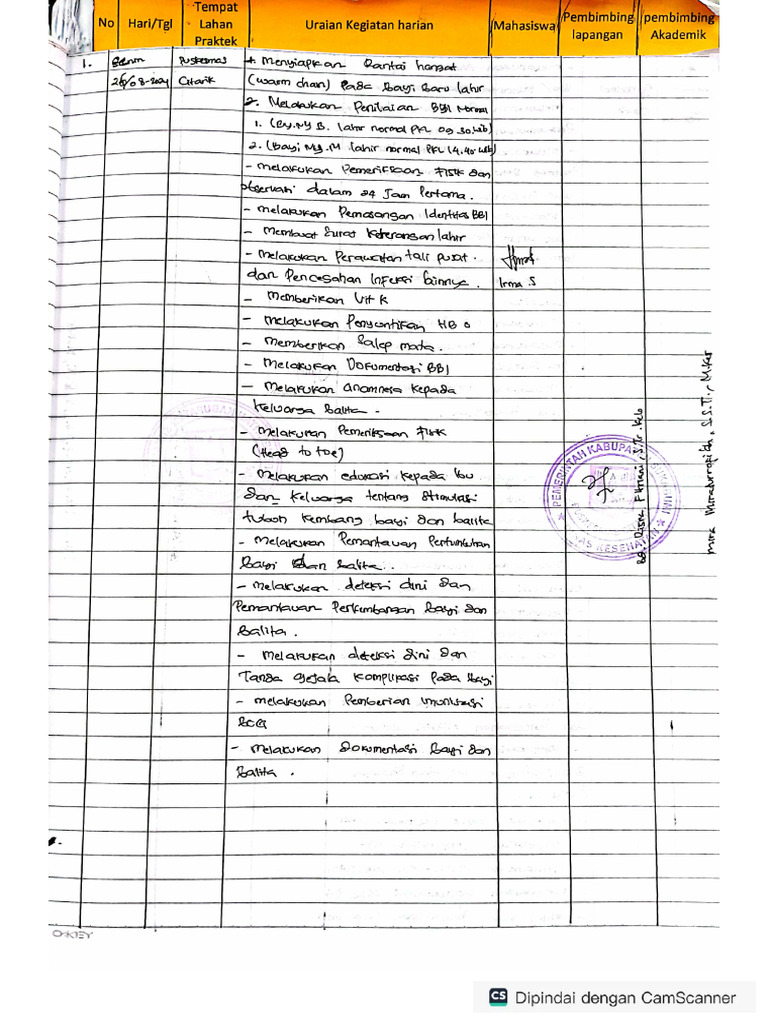 No Hari/Tgl Tempat Lahan Praktek Uraian Kegiatan harian Mahasiswa Pembimbing lapangan pembimbing Akademik
1. Senin Puskesmas + Menyiapkan Rantai hangat
26/08-2024 Citarik (warm chan) Pada bayi baru lahir
2. Melakukan Penilaian BBl Normal
1. (By.Ny B. lahir normal PKL 09.30 wib)
2. (Bayi Ny.M lahir normal PKL 14.40 wib)
- Melakukan Pemeriksaan Fisik dan
observasi dalam 24 Jam Pertama.
- Melakukan Pemasangan Identitas BBl
- Membuat Surat Keterangan lahir
- Melakukan Perawatan tali pusat.
dan Pencegahan Infeksi lainnya. Irma S
- Memberikan Vit K
- Melakukan Penyuntikan HB 0
- Memberikan Salep mata.
- Melakukan Dokumentasi BBl
- Melakukan anamnesa kepada
keluarga balita -
- Melakukan Pemeriksaan Fisik
(Head to toe)
- Melakukan edukasi kepada Ibu
dan keluarga tentang stimulasi
tubuh kembang bayi dan balita
- Melakukan Pemantauan Pertumbuhan
Bayi dan balita..
- Melakukan deteksi dini dan
Pemantauan Perkembangan bayi dan
balita.
- Melakukan deteksi dini dan
Tanda gejala komplikasi Pada bayi
- Melakukan Pemberian imunisasi
BCG
- Melakukan dokumentasi bayi dan
balita.
PEMERINTAH KABUPATEN
KESEHATAN
S.Tr.Keb
S.ST., M.Kes
O-KEY
CS Dipindai dengan CamScanner